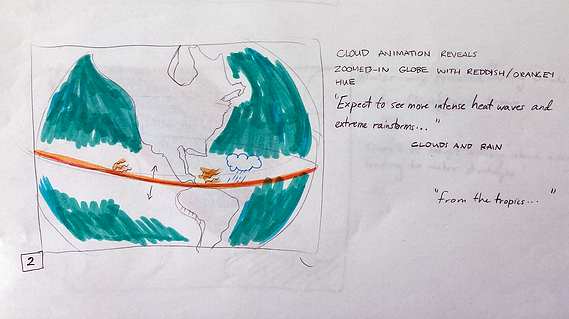 CLOUD ANIMATION REVEALS
ZOOMED-IN GLOBE WITH REDDISH/ORANGEY
HUE
"Expect to see more intense heat waves and
extreme rainstorms..."
CLOUDS AND RAIN
"from the tropics..."
2